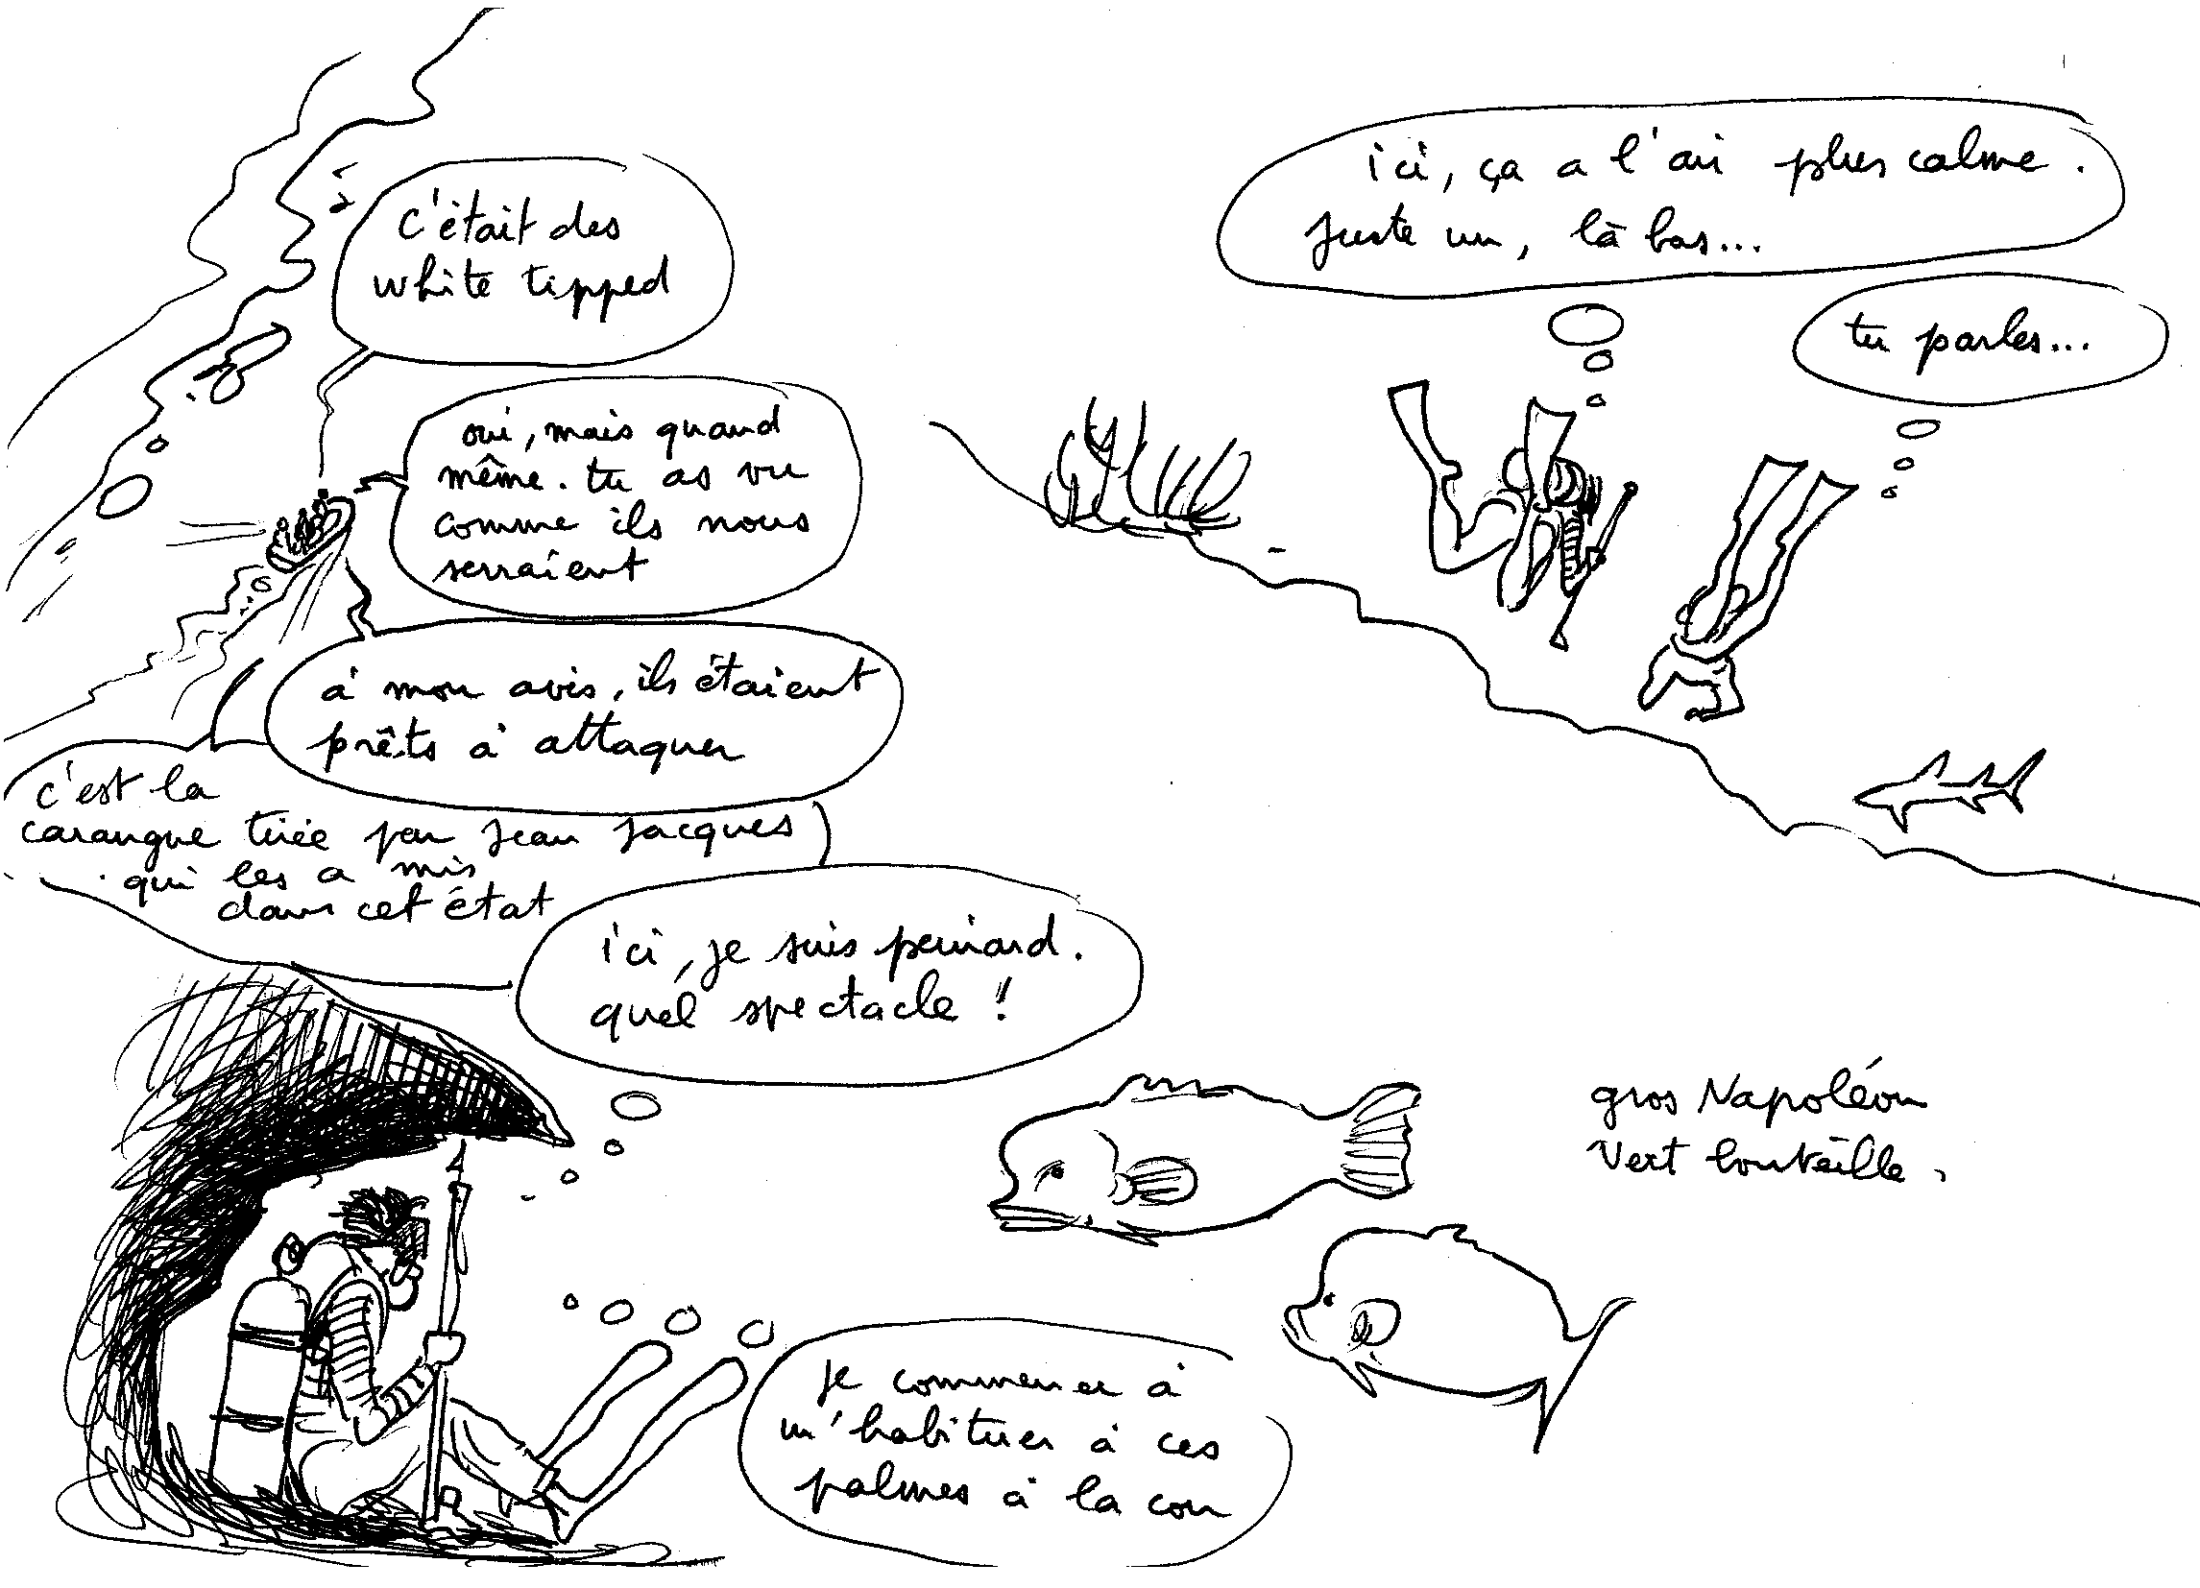 c'était des
white tipped
oui, mais quand
même. tu as vu
comme ils nous
serraient
à mon avis, ils étaient
prêts à attaquer
c'est la
carangue tirée par Jean Jacques
qui les a mis
dans cet état
ici, ça a l'air plus calme.
juste un, là bas...
tu parles...
ici, je suis peinard.
quel spectacle !
gros Napoléon
vert bouteille.
je commence à
m'habituer à ces
palmes à la con